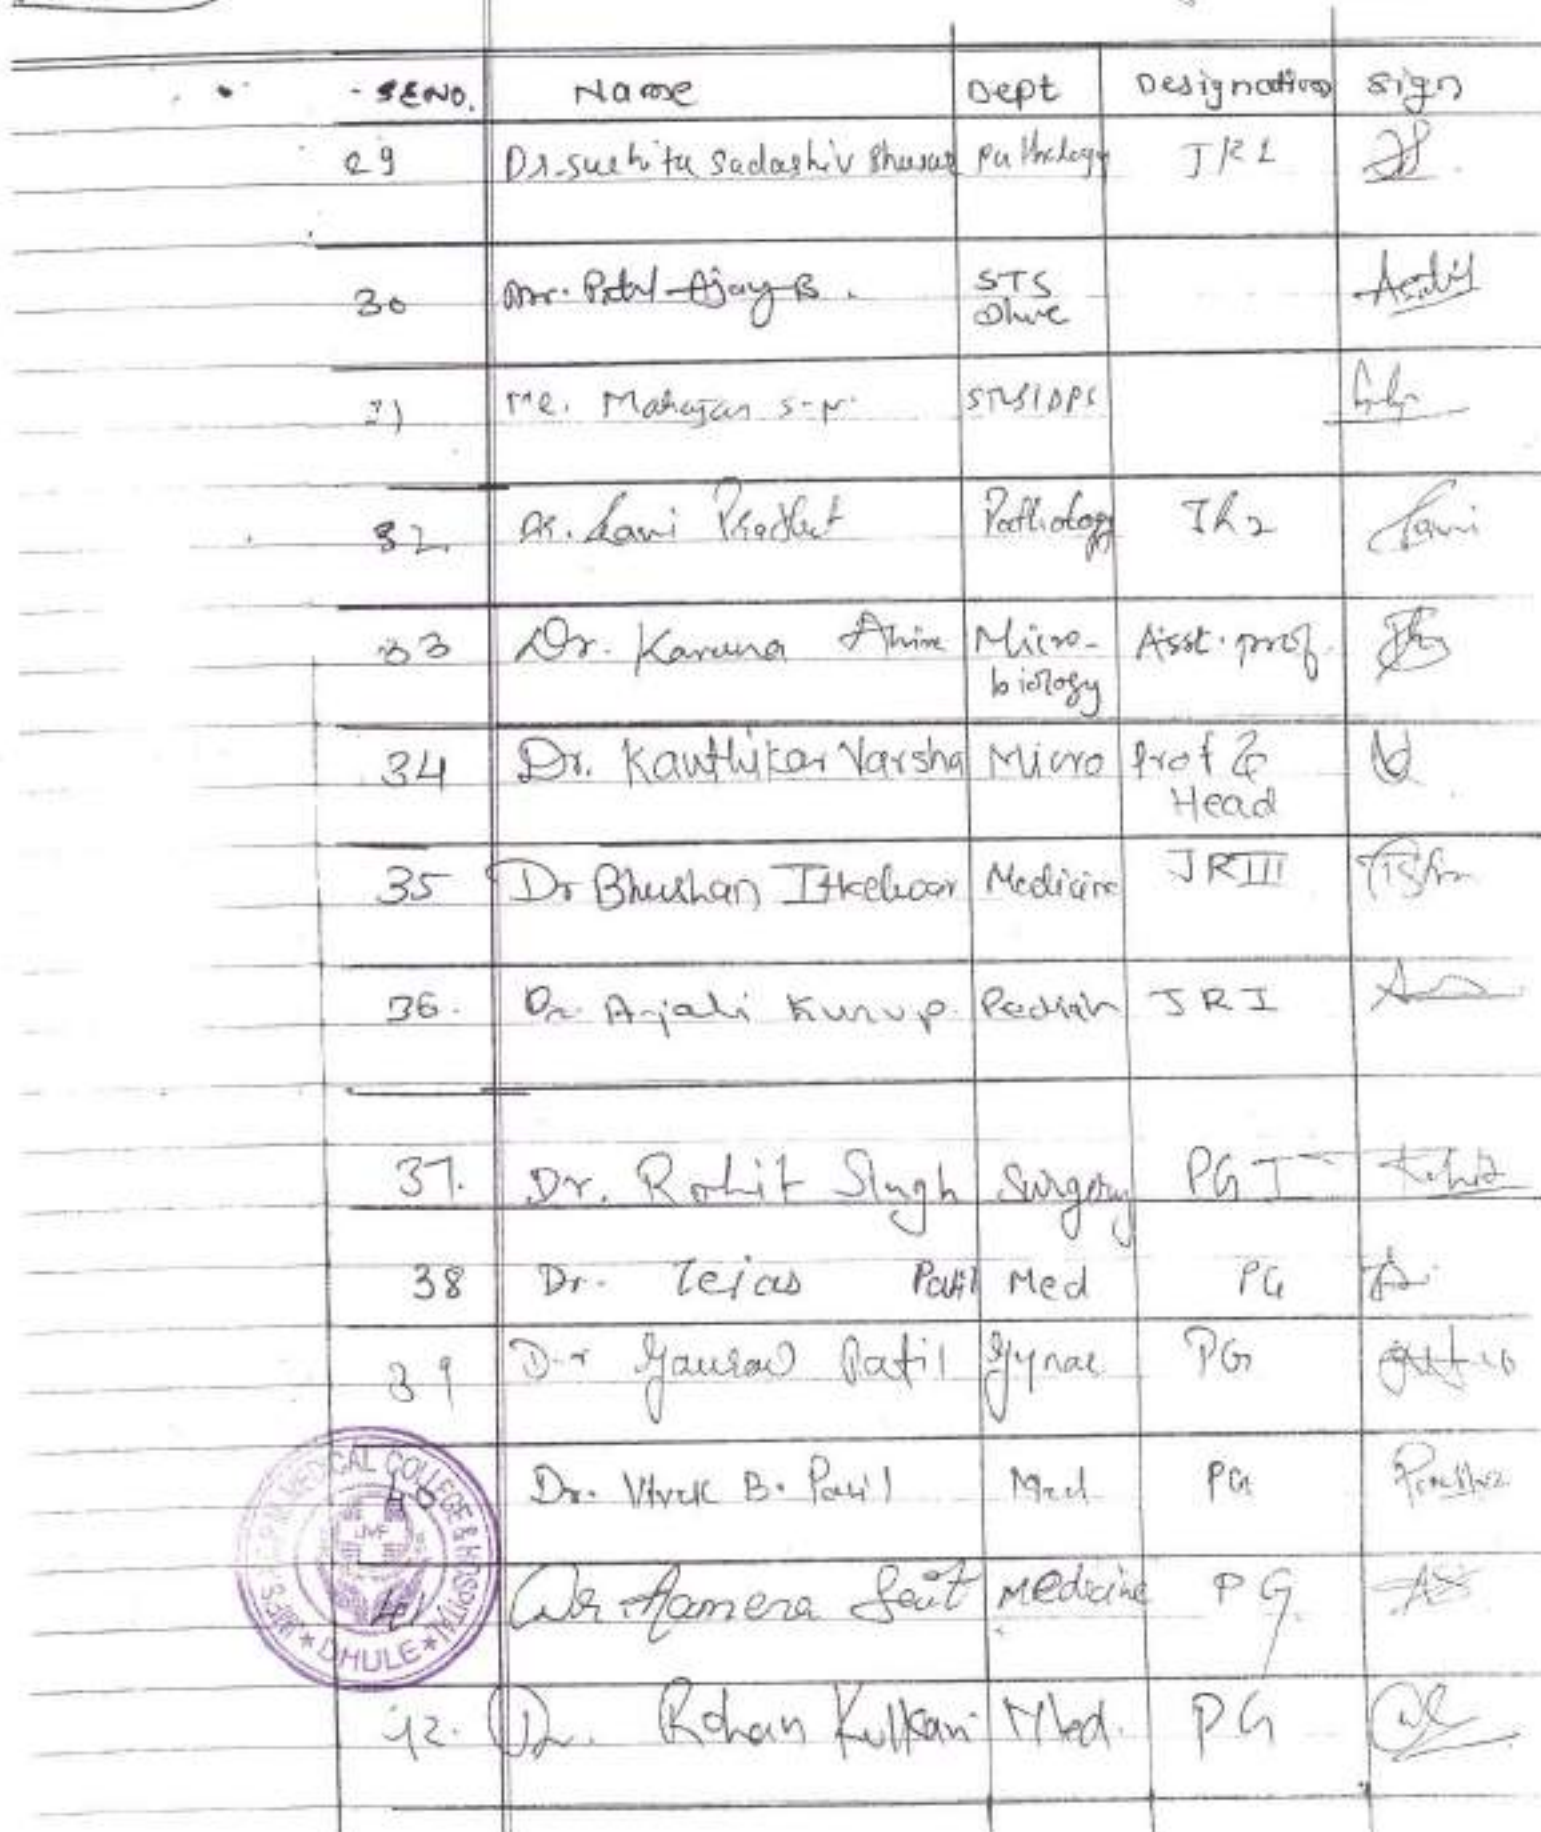 SENO. Name Dept Designation sign
29 Dr. Suchita Sadashiv Pathology JR1
30 Mr. Patil Ajay B. STS
Dhule
31 Mr. Mahajan S. P.
32. Dr. Pathology JR2
33 Dr. Karuna Ahire Micro- Asst. prof.
biology
34 Dr. Kanthikar Varsha Micro Prof &
Head
35 Dr Bhushan Medicine JRIII
36. Dr. Anjali Kurup. JRI
37. Dr. Rohit Singh Surgery PG I Rohit
38 Dr. Tejas Patil Med PG
39 Dr Gaurav Patil Gynae PG
40 Dr. Vivek B. Patil Med PG
41 Dr Aamera Medicine PG
42. Dr. Rohan Kulkarni Med. PG
MEDICAL COLLEGE & HOSPITAL
JMF
* DHULE *